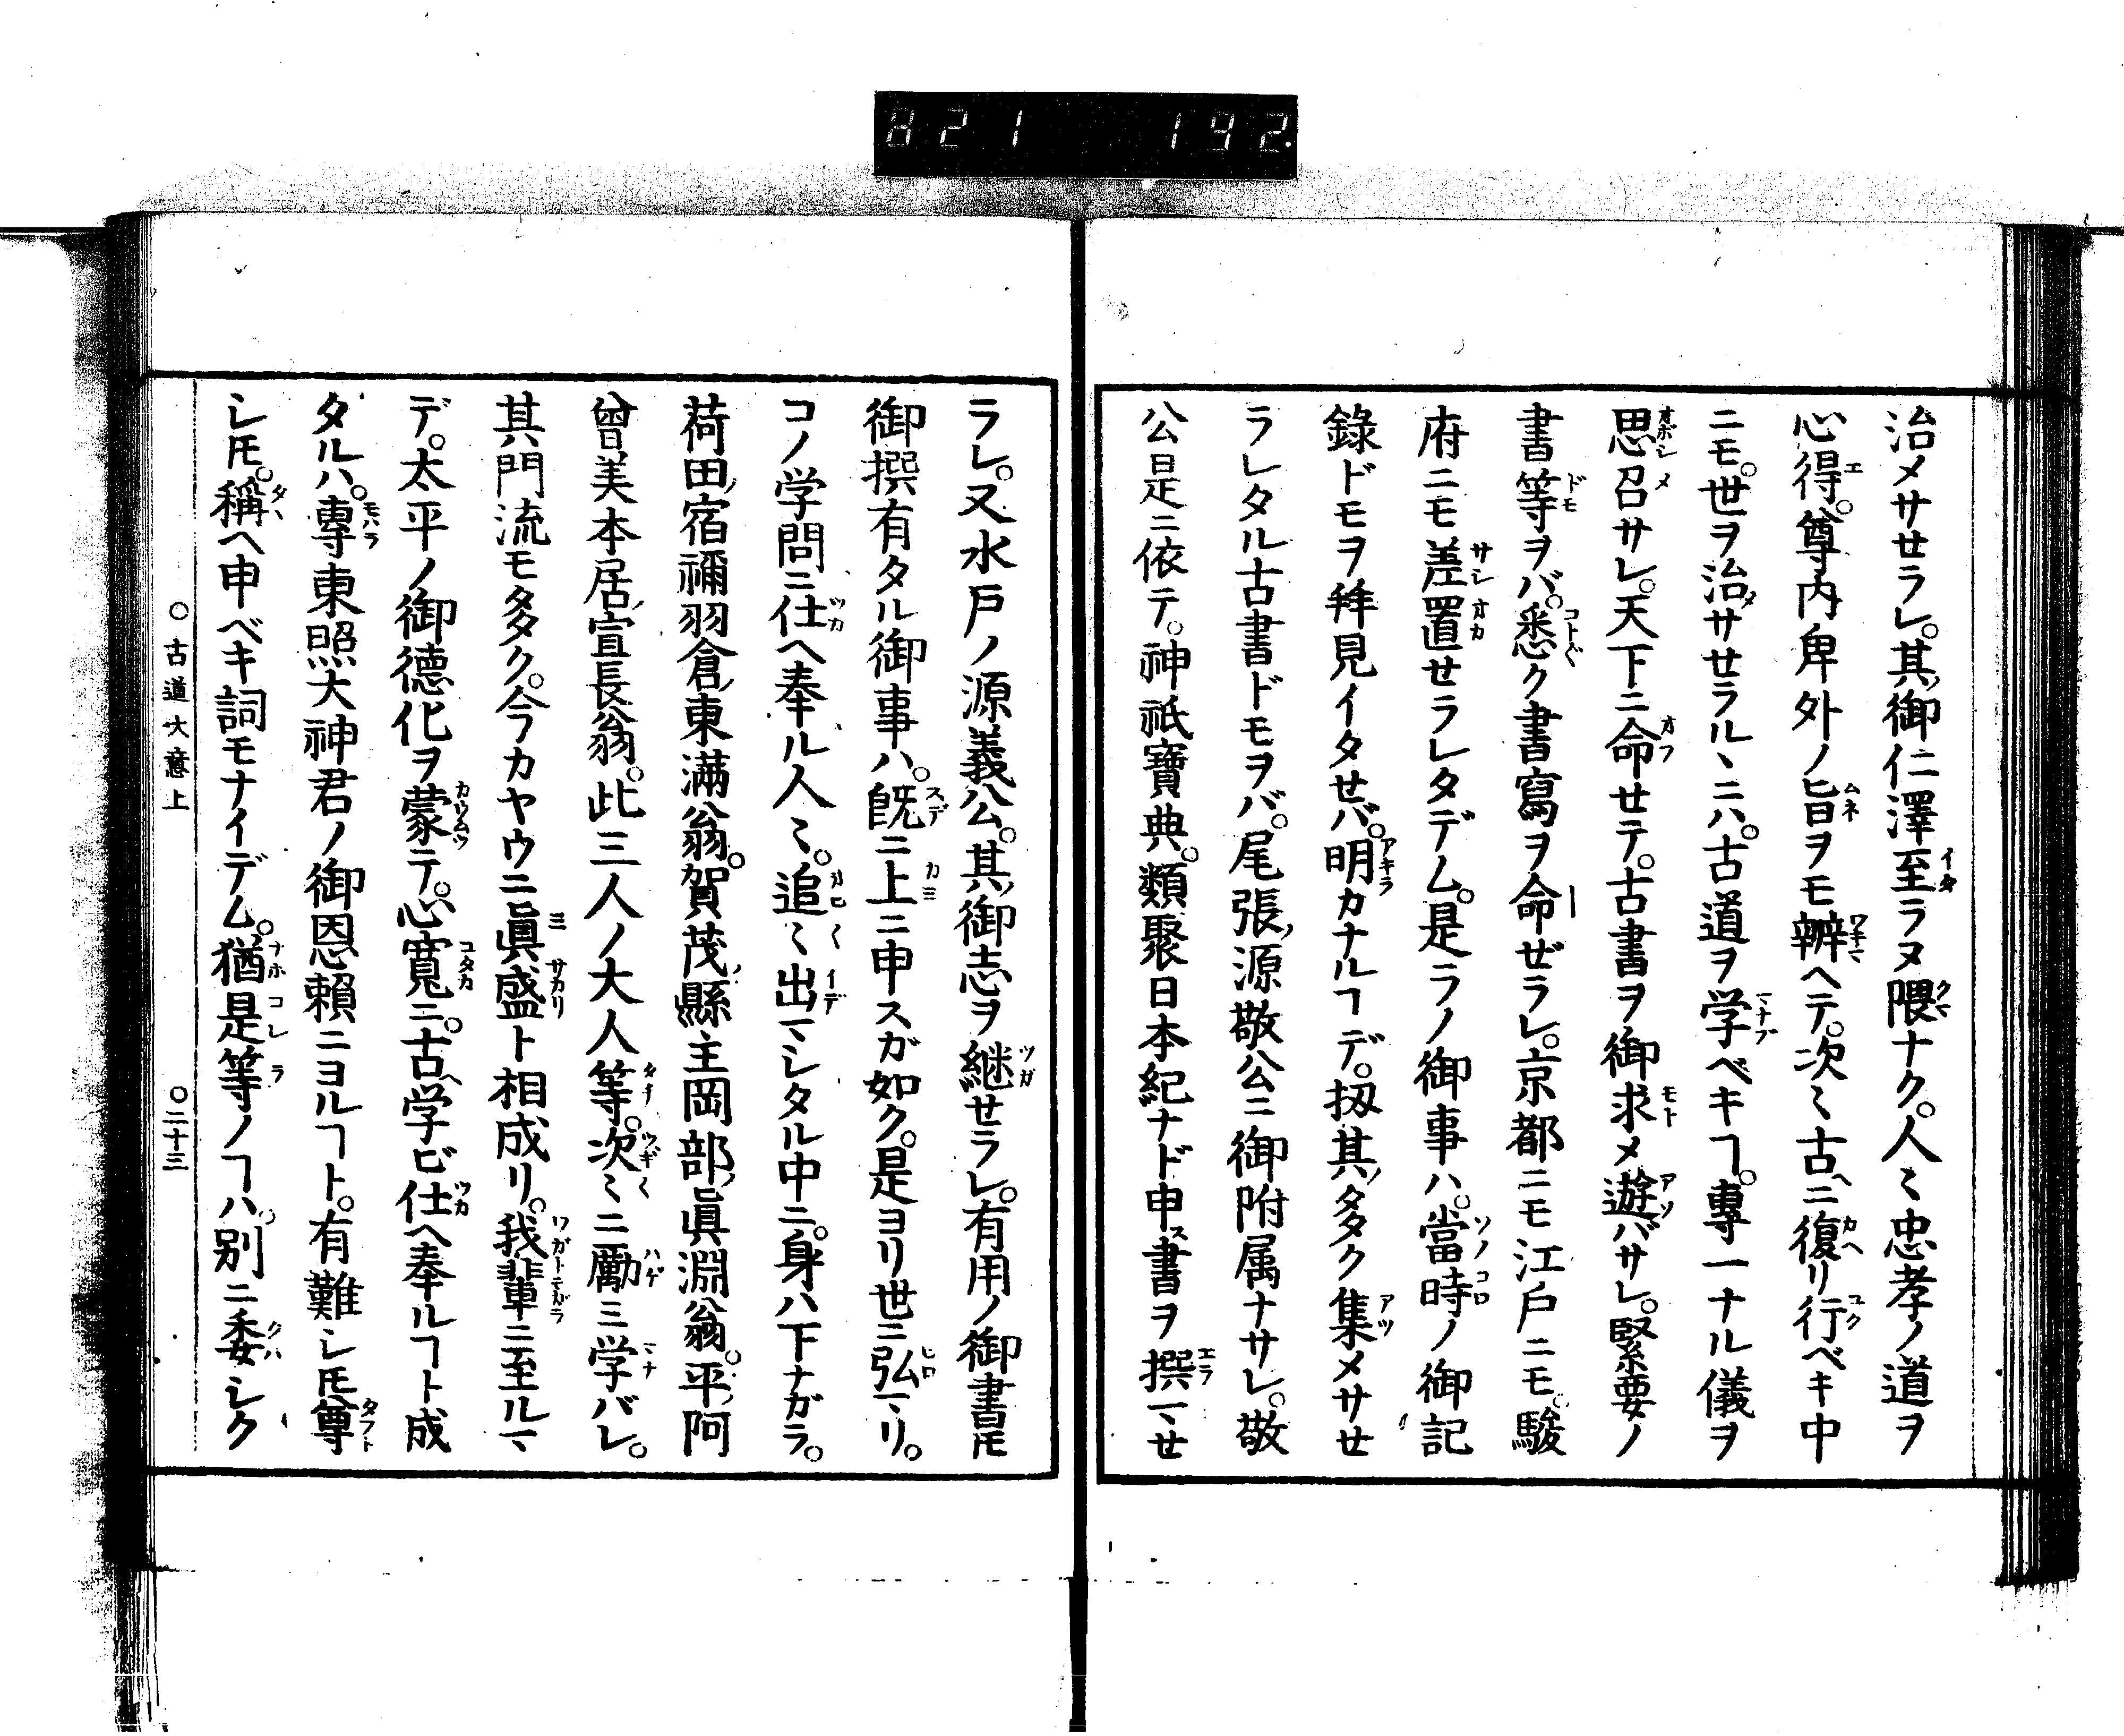 821 192.
治メサセラレ。其ノ御仁澤至ラヌ隈ナク。人々忠孝ノ道ヲ
心得。尊内卑外ノ旨ヲモ辨ヘテ。次々古ヘニ復リ行ベキ中
ニモ。世ヲ治メサセラルヽニハ。古道ヲ学ベキヿ。專一ナル儀ヲ
思召サレ。天下ニ命セテ。古書ヲ御求メ遊バサレ。緊要ノ
書等ヲバ。悉ク書寫ヲ命ゼラレ。京都ニモ江戸ニモ。駿
府ニモ差置セラレタデム。是ラノ御事ハ。當時ノ御記
錄ドモヲ拜見イタセバ。明カナルヿデ。扨其ノ多ク集メサセ
ラレタル古書ドモヲバ。尾張ノ源敬公ニ御附属ナサレ。敬
公是ニ依テ。神祇寶典。類聚日本紀ナド申ス書ヲ撰マセ
ラレ。又水戸ノ源義公。其ノ御志ヲ継セラレ。有用ノ御書𪜈
御撰有タル御事ハ。既ニ上ニ申スガ如ク。是ヨリ世ニ弘マリ。
コノ学問ニ仕ヘ奉ル人々。追々出マシタル中ニ。身ハ下ナガラ。
荷田ノ宿禰羽倉ノ東満翁。賀茂ノ縣主岡部ノ眞淵翁。平ノ阿
曾美本居ノ宣長翁。此三人ノ大人等。次々ニ勵ミ学バレ。
其門流モ多ク。今カヤウニ眞盛ト相成リ。我輩ニ至ルマ
デ。太平ノ御德化ヲ蒙テ。心寬ニ。古ヘ学ビ仕ヘ奉ルヿト成
タルハ。專東照大神君ノ御恩賴ニヨルヿト。有難シ𪜈尊
シ𪜈。稱ヘ申ベキ詞モナイデム。猶是等ノヿハ。別ニ委シク
○古道大意上 ○二十三